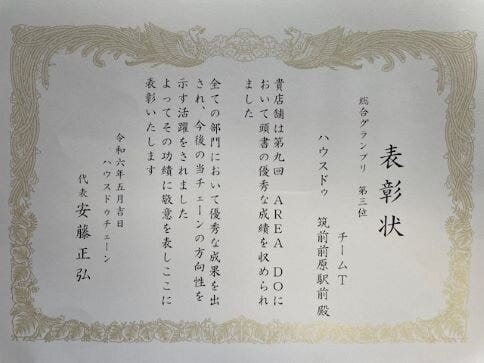 表彰状
総合グランプリ 第三位
チームT
ハウスドゥ 筑前前原駅前殿
貴店舗は第九回 AREA DOに
おいて頭書の優秀な成績を収められ
ました
全ての部門において優秀な成果を出
され、今後の当チェーンの方向性を
示す活躍をされました
よってその功績に敬意を表しここに
表彰いたします
令和六年五月吉日
ハウスドゥチェーン
代表 安藤正弘